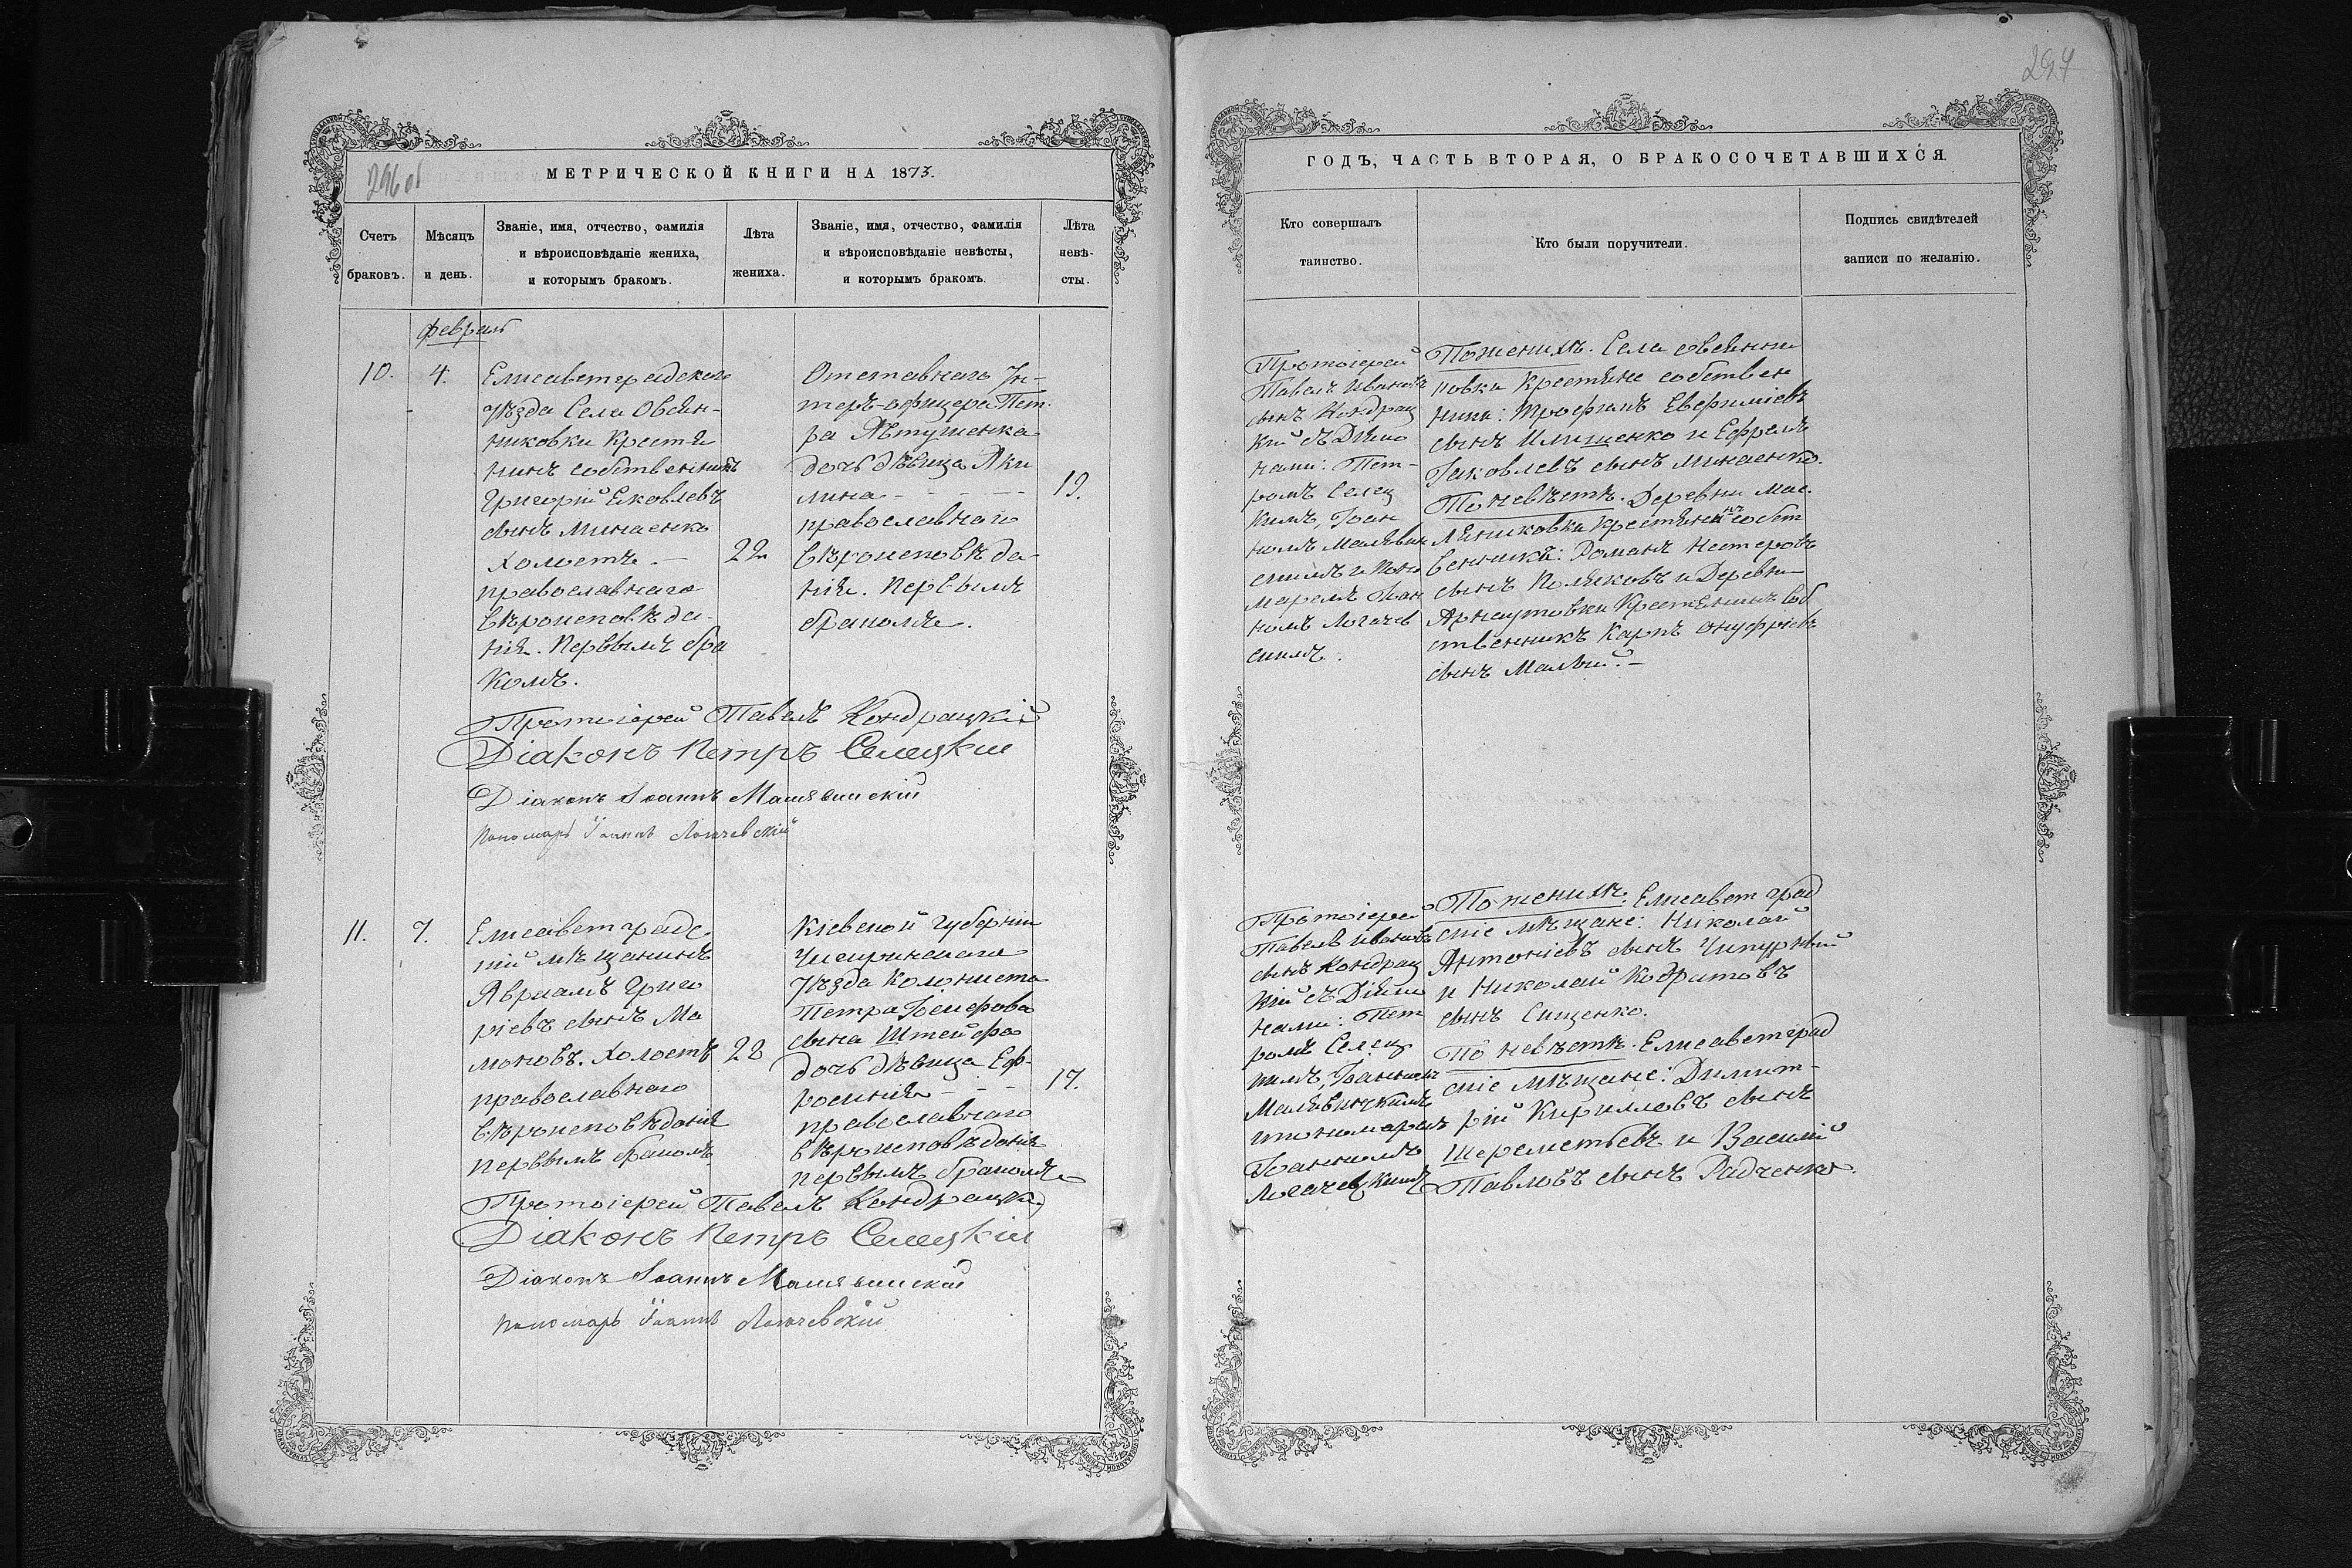 296 об
МЕТРИЧЕСКОЙ КНИГИ НА 1873.
Счетъ браковъ.
Мѣсяцъ и день.
Званіе, имя, отчество, фамилія
и вѣроисповѣданіе жениха,
и которымъ бракомъ.
Лѣта жениха.
Званіе, имя, отчество, фамилія
и вѣроисповѣданіе невѣсты,
и которымъ бракомъ.
Лѣта невѣ-
сты.
февраль
10.
4.
Елисаветградскаго
уѣзда Села Овсян-
никовки Крестья
нинъ собственникъ
Григорій Яковлевъ
сынъ Минаенко
холостъ. —
православнаго
вѣроисповѣда-
нія. Первымъ бра
комъ.
22
Отставнаго Ун-
теръ-офицера Пет-
ра Лѣтушенка
дочь дѣвица Аки
лина - - - -
православнаго
вѣроисповѣда-
нія. Первымъ
бракомъ.
19.
Протоіерей Павелъ Кондрацкій
Діаконъ Петръ Селецкій
Діаконъ Іоаннъ Малявинскій
Пономарь Іоаннъ Логачевскій
11.
7.
Елисаветградс
кій мѣщанинъ
Авраамъ Григо
ріевъ сынъ Ма
моновъ. Холостъ
православнаго
вѣроисповѣданія
первымъ бракомъ
28
Кіевской Губерніи
Чигиринскаго
уѣзда Колониста
Петра
сына Штейфа
дочь дѣвица Еф-
росинія - -
православнаго
вѣроисповѣданія
первымъ бракомъ
17.
Протоіерей Павелъ Кондрацкій
Діаконъ Петръ Селецкій
Діаконъ Іоаннъ Малявинскій
пономарь Іоаннъ Логачевскій
297
ГОДЪ, ЧАСТЬ ВТОРАЯ, О БРАКОСОЧЕТАВШИХСЯ.
Кто совершалъ
таинство.
Кто были поручители.
Подпись свидѣтелей
записи по желанію.
Протоіерей
Павелъ Ивановъ
сынъ Кондрац
кій съ Діако
нами: Пет-
ромъ Селец
кимъ, Іоан
номъ Малявин
скимъ и Поно
маремъ Іоан
номъ Логачев
скимъ.
По женихѣ. Села Овсянни
ковки Крестьяне собствен
ники: Трофимъ Евфиміевъ
сынъ Илищенко и Ефремъ
Іаковлевъ сынъ Минаенко.
По невѣстѣ. Деревни Мас
ляниковки Крестьянинъ собст
венникъ: Романъ Нестеровъ
сынъ Поляковъ и Деревни
Арнаутовки Крестьянинъ Соб
ственникъ Карпъ Онуфріевъ
сынъ Малый. —
Протоіерей
Павелъ Ивановъ
сынъ Кондрац
кій съ Діако
нами: Пет
ромъ Селец
кимъ, Іоанномъ
Малявинскимъ
и пономаремъ
Іоанномъ
Логачевскимъ
По женихѣ. Елисаветград
скіе мѣщане: Николай
Антоніевъ сынъ Чипурный
и Николай Кодратовъ
сынъ Сищенко.
По невѣстѣ. Елисаветград
скіе мѣщане: Димит-
рій Кириловъ сынъ
Шереметьевъ и Василій
Павловъ сынъ Радченко.